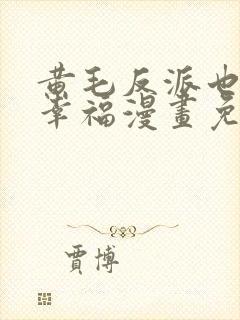 黄毛反派也
幸福漫畫免
賈博